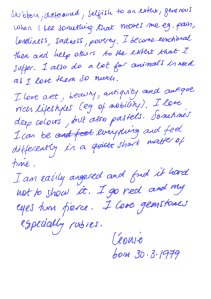 Stubborn, determined, selfish to an extent, generous
when I see something that moves me eg. pain,
loneliness, sadness, poverty. I become emotional
then and help others to the extent that I
suffer. I also do a lot for animals in need
as I love them so much.
I love art, beauty, antiquity and antique
rich lifestyles (eg of nobility). I love
deep colours, but also pastels. Sometimes
I can be and feel everything and feel
differently in a quite short matter of
time.
I am easily angered and find it hard
not to show it. I go red and my
eyes turn fierce. I love gemstones
especially rubies.
Leonie
born 30.3.1979